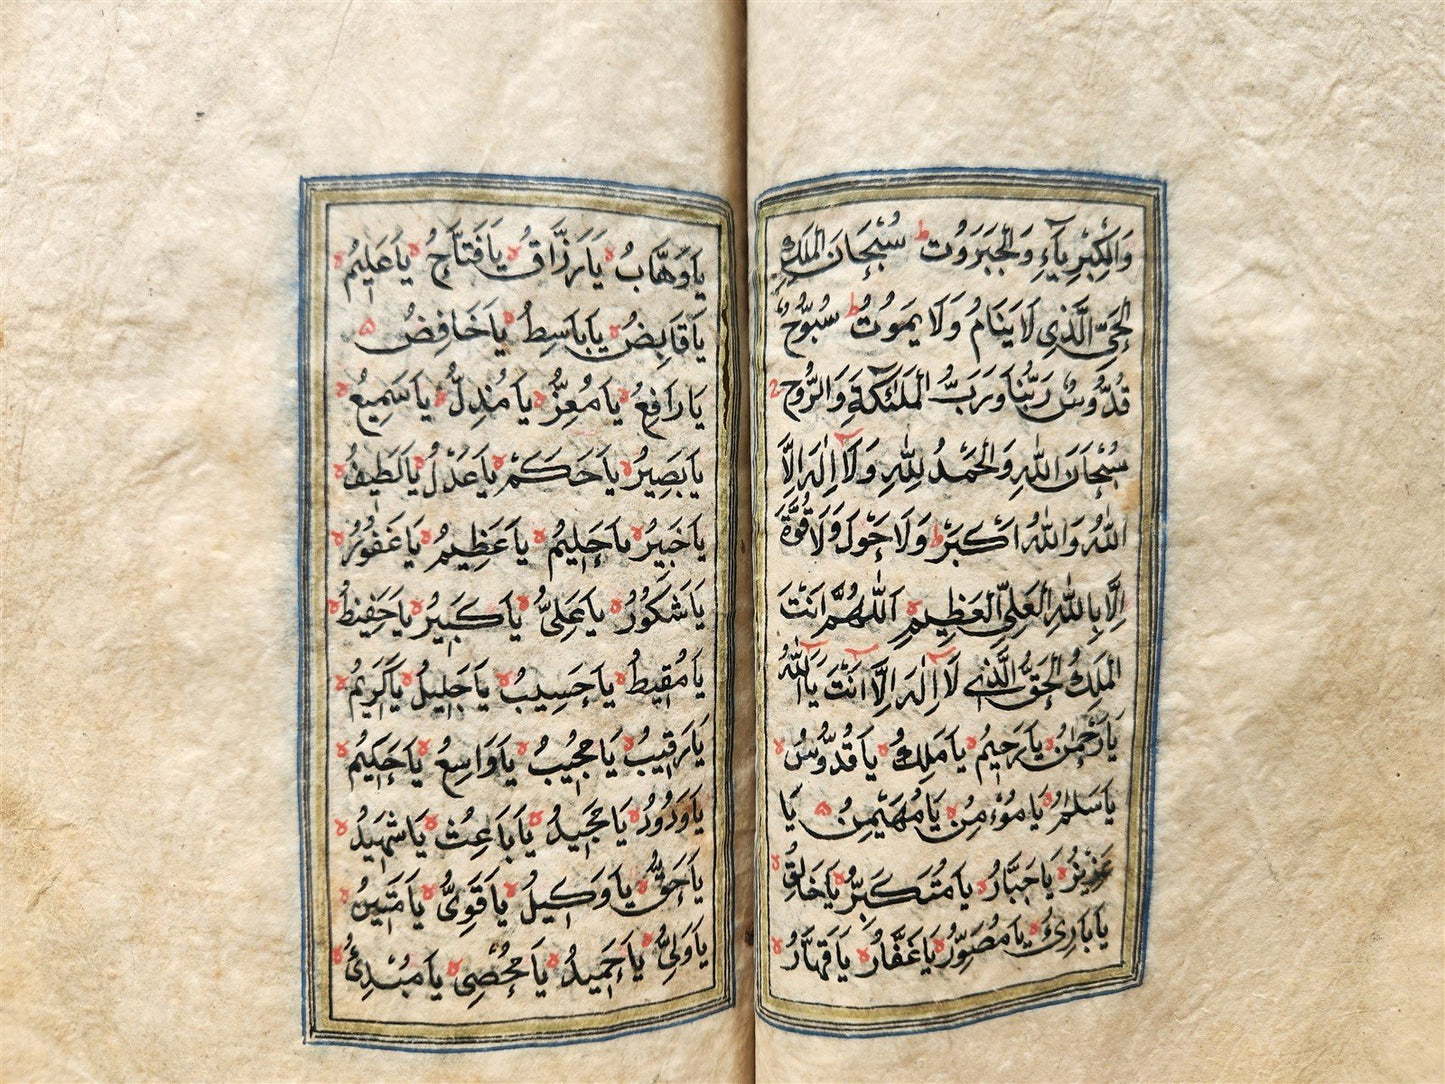 وَالْكِبْرِيَآءِ وَالْجَبَرُوْتِ ط سُبْحَانَ الْمَلِكِ
الْحَيِّ الَّذِي لَا يَنَامُ وَلَا يَمُوْتُ ط سُبُّوْحٌ
قُدُّوْسٌ رَبُّنَا وَرَبُّ الْمَلٰئِكَةِ وَالرُّوْحِ
سُبْحَانَ اللّٰهِ وَالْحَمْدُ لِلّٰهِ وَلَآ اِلٰهَ اِلَّا
اللّٰهُ وَاللّٰهُ اَكْبَرُ ط وَلَا حَوْلَ وَلَا قُوَّةَ
اِلَّا بِاللّٰهِ الْعَلِيِّ الْعَظِيْمِ اَللّٰهُمَّ اَنْتَ
الْمَلِكُ الْحَقُّ الَّذِي لَآ اِلٰهَ اِلَّآ اَنْتَ يَآ اَللّٰهُ
يَا رَحْمٰنُ يَا رَحِيْمُ يَا مَلِكُ يَا قُدُّوْسُ
يَا سَلٰمُ يَا مُؤْمِنُ يَا مُهَيْمِنُ يَا
عَزِيْزُ يَا جَبَّارُ يَا مُتَكَبِّرُ يَا خَالِقُ
يَا بَارِئُ يَا مُصَوِّرُ يَا غَفَّارُ يَا قَهَّارُ
يَا وَهَّابُ يَا رَزَّاقُ يَا فَتَّاحُ يَا عَلِيْمُ
يَا قَابِضُ يَا بَاسِطُ يَا خَافِضُ
يَا رَافِعُ يَا مُعِزُّ يَا مُذِلُّ يَا سَمِيْعُ
يَا بَصِيْرُ يَا حَكَمُ يَا عَدْلُ يَا لَطِيْفُ
يَا خَبِيْرُ يَا حَلِيْمُ يَا عَظِيْمُ يَا غَفُوْرُ
يَا شَكُوْرُ يَا عَلِيُّ يَا كَبِيْرُ يَا حَفِيْظُ
يَا مُقِيْطُ يَا حَسِيْبُ يَا جَلِيْلُ يَا كَرِيْمُ
يَا رَقِيْبُ يَا مُجِيْبُ يَا وَاسِعُ يَا حَكِيْمُ
يَا وَدُوْدُ يَا مَجِيْدُ يَا بَاعِثُ يَا شَهِيْدُ
يَا حَقُّ يَا وَكِيْلُ يَا قَوِيُّ يَا مَتِيْنُ
يَا وَلِيُّ يَا حَمِيْدُ يَا مُحْصِيْ يَا مُبْدِئُ